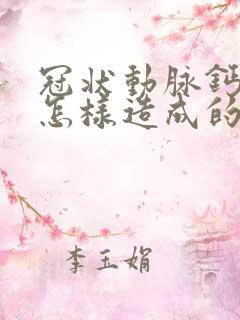 冠狀動脈鈣
怎樣造成的
李玉娟